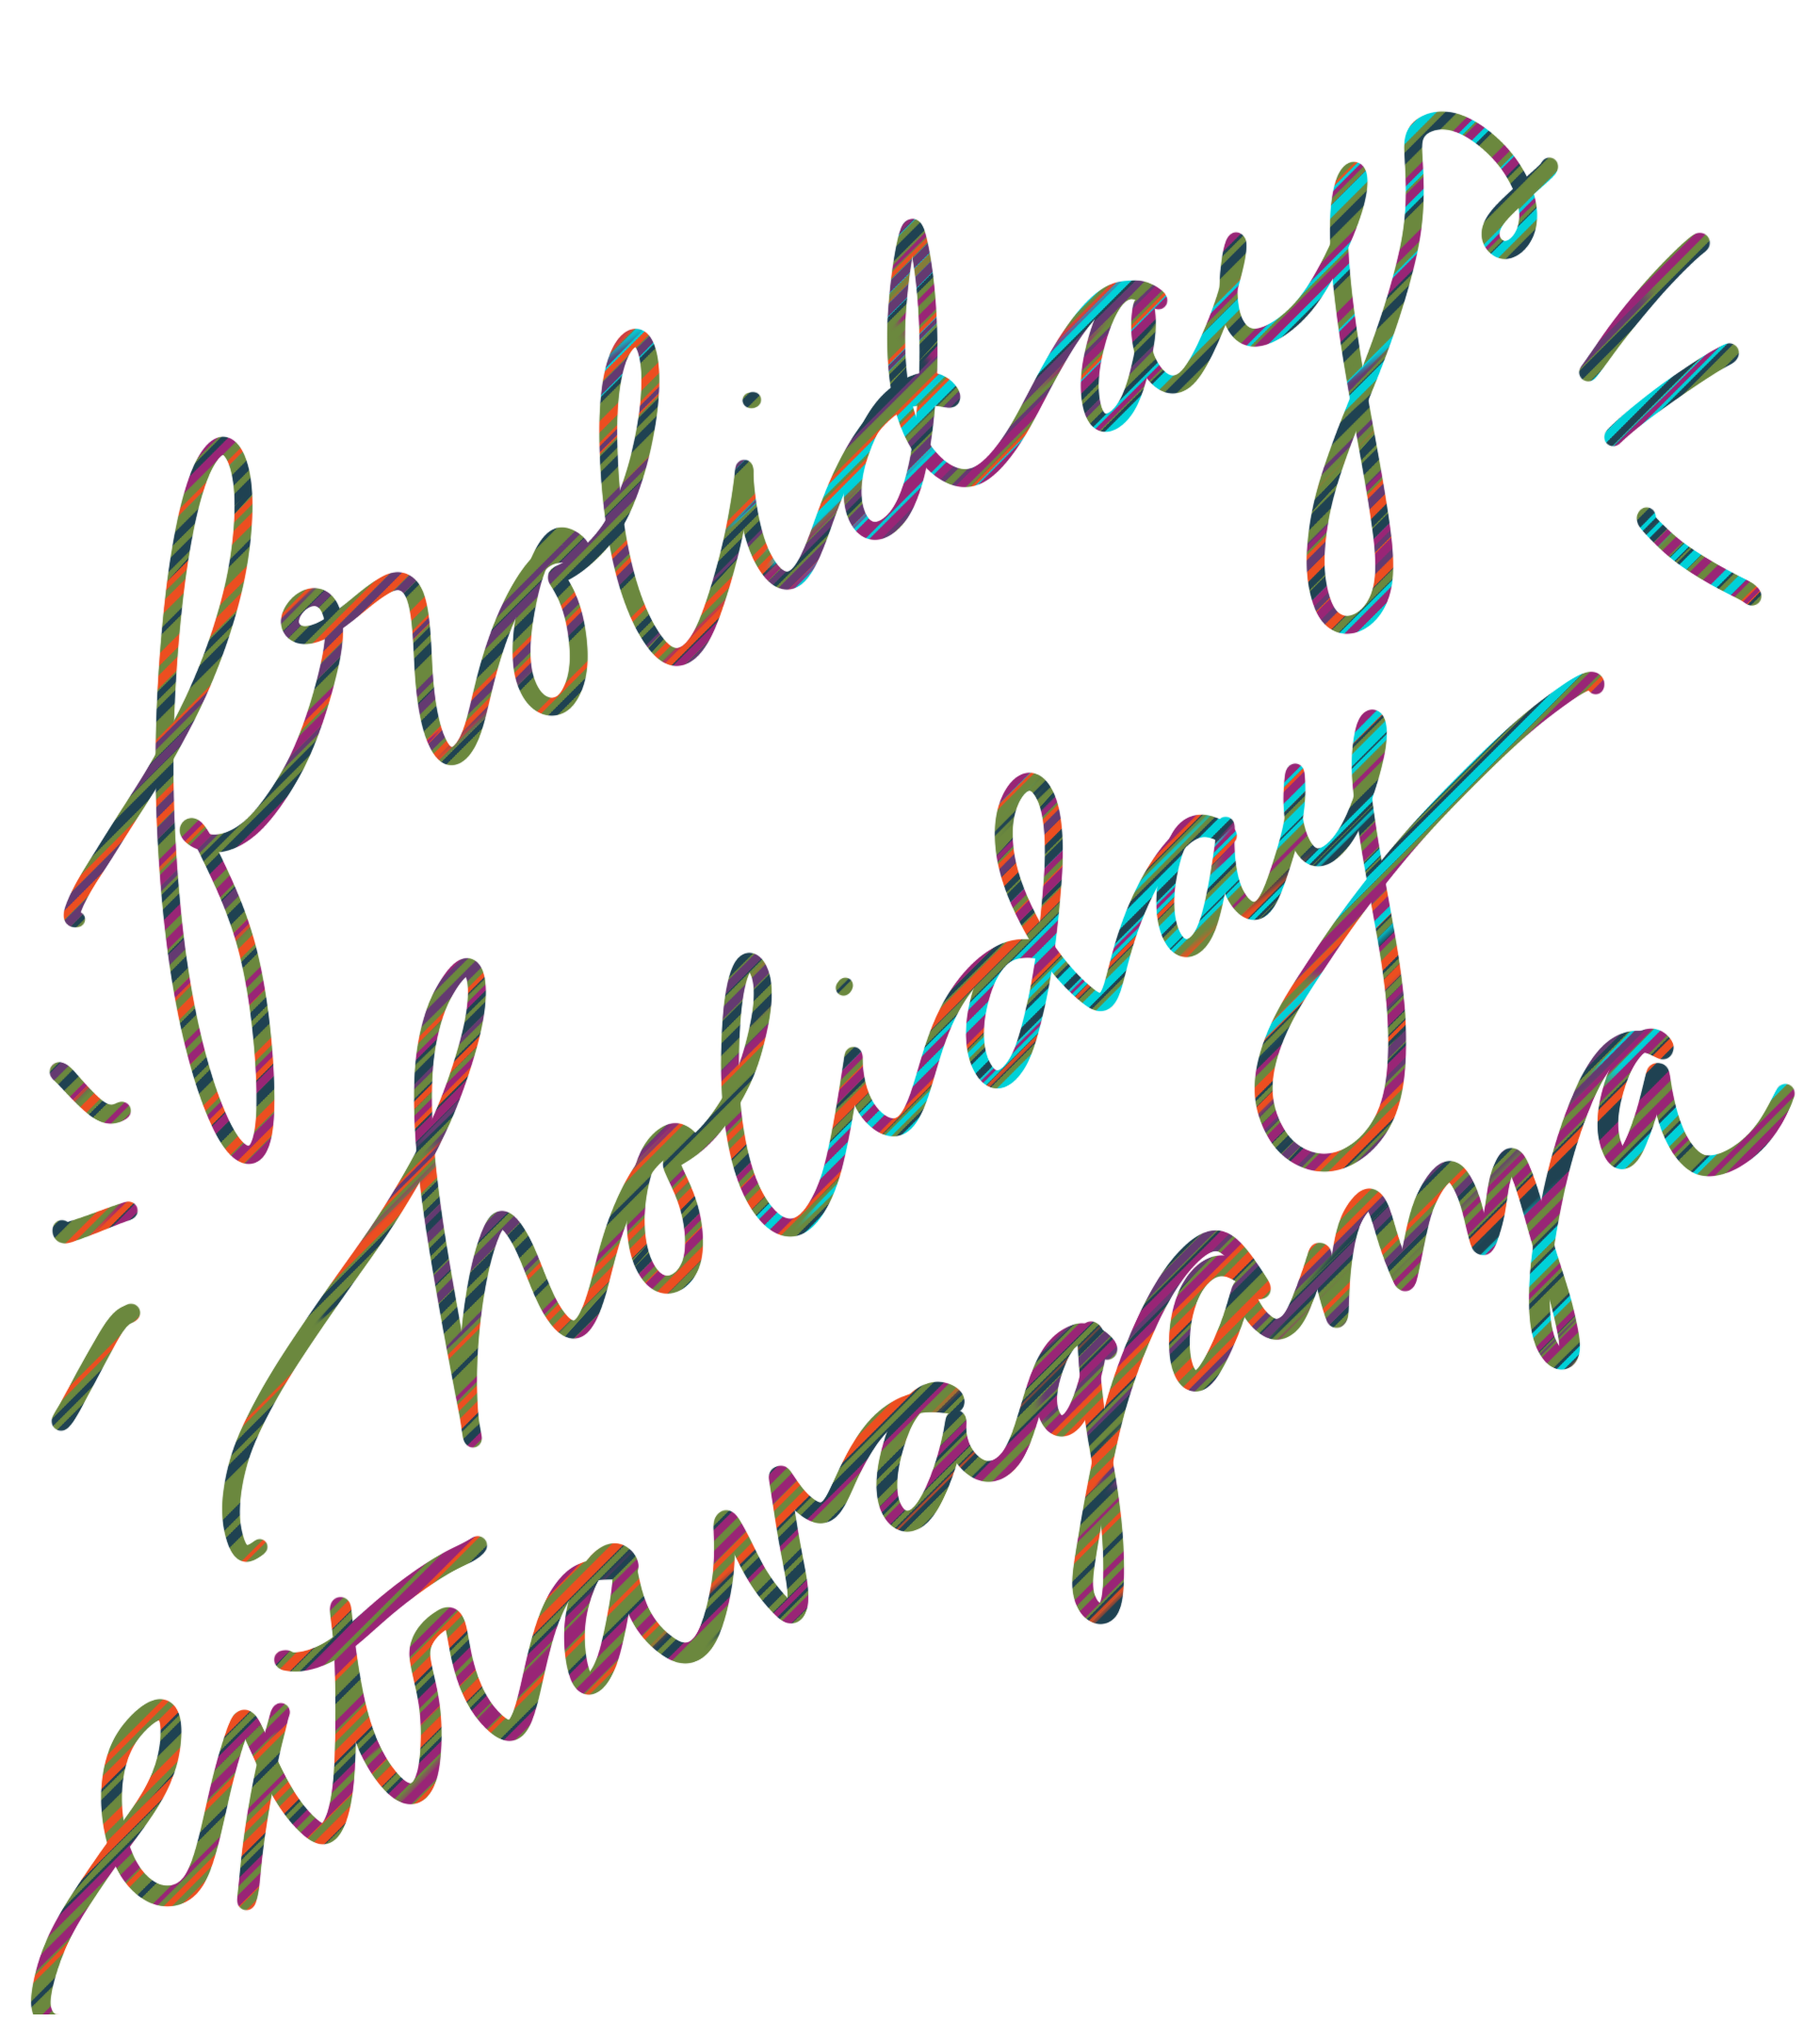 frolidays
holiday
extravaganza